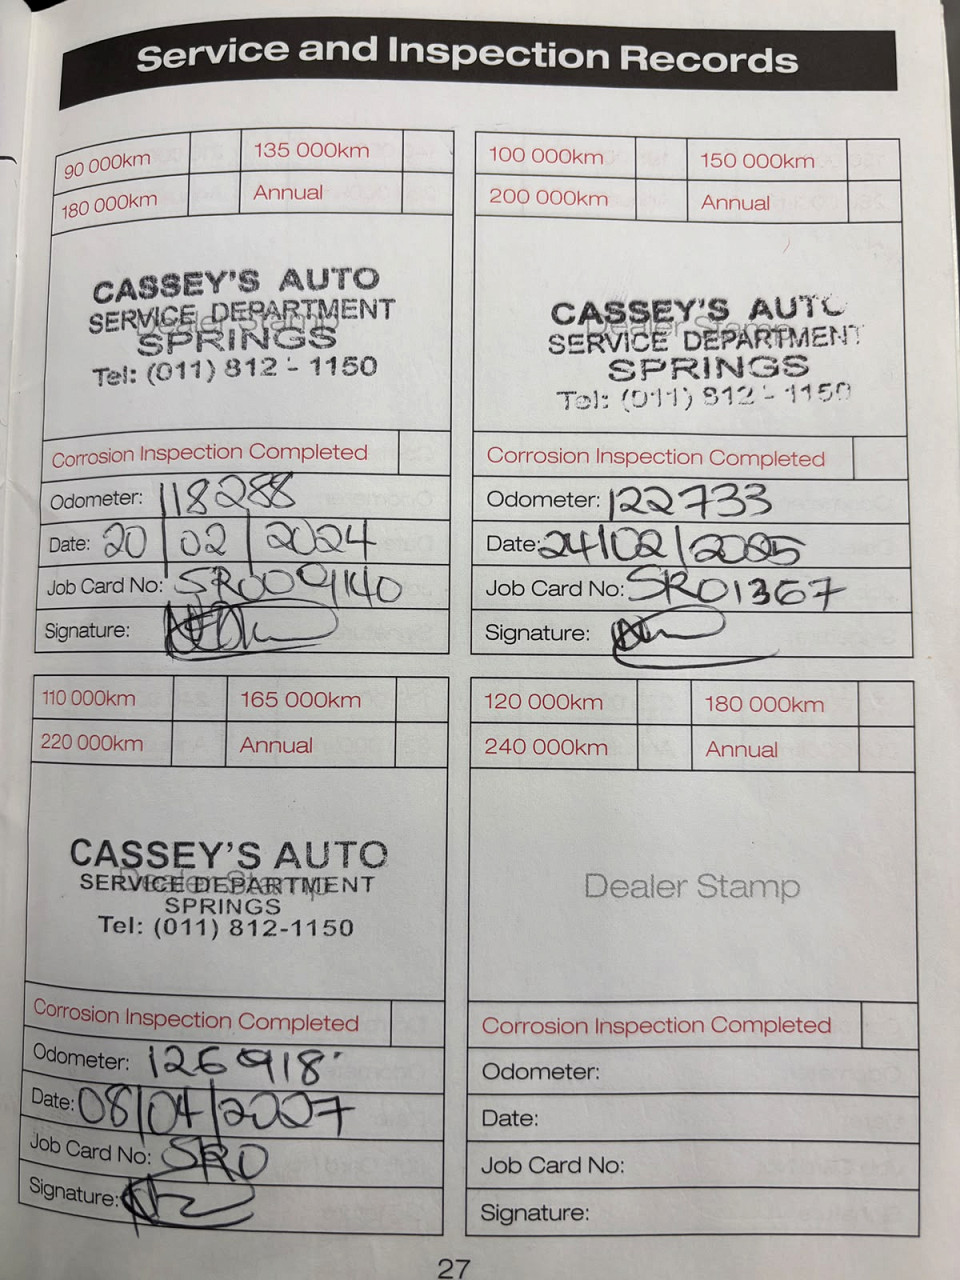 Service and Inspection Records
90 000km 135 000km
180 000km Annual
Dealer Stamp
CASSEY'S AUTO
SERVICE DEPARTMENT
SPRINGS
Tel: (011) 812 - 1150
Corrosion Inspection Completed
Odometer: 118288
Date: 20 | 02 | 2024
Job Card No: SR009140
Signature:
100 000km 150 000km
200 000km Annual
Dealer Stamp
CASSEY'S AUTO
SERVICE DEPARTMENT
SPRINGS
Tel: (011) 812 - 1150
Corrosion Inspection Completed
Odometer: 122733
Date: 24/02/2025
Job Card No: SR01367
Signature:
110 000km 165 000km
220 000km Annual
Dealer Stamp
CASSEY'S AUTO
SERVICE DEPARTMENT
SPRINGS
Tel: (011) 812-1150
Corrosion Inspection Completed
Odometer: 126918
Date: 08/04/2007
Job Card No: SRO
Signature:
120 000km 180 000km
240 000km Annual
Dealer Stamp
Corrosion Inspection Completed
Odometer:
Date:
Job Card No:
Signature:
27